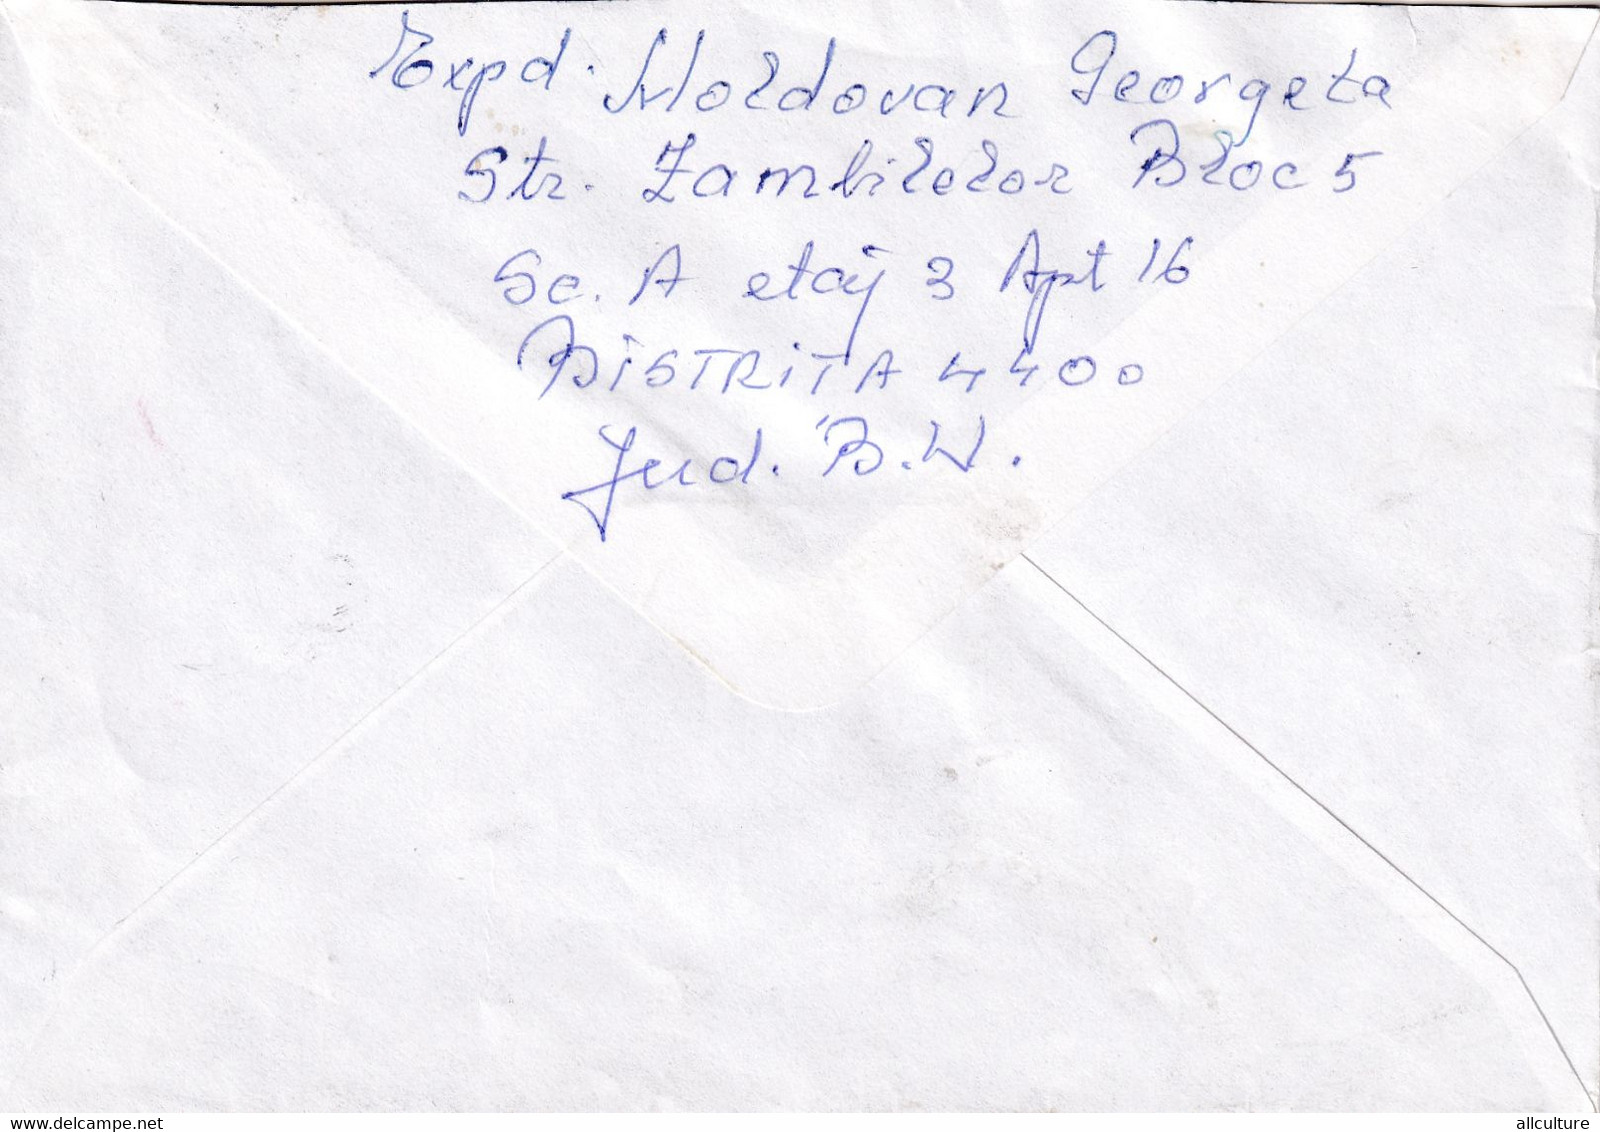 Expd. Moldovan Georgeta
Str. Zambilelor Bloc 5
Sc. A etaj 3 Apt 16
BISTRITA 4400
Jud. B.N.
www.delcampe.net
allculture